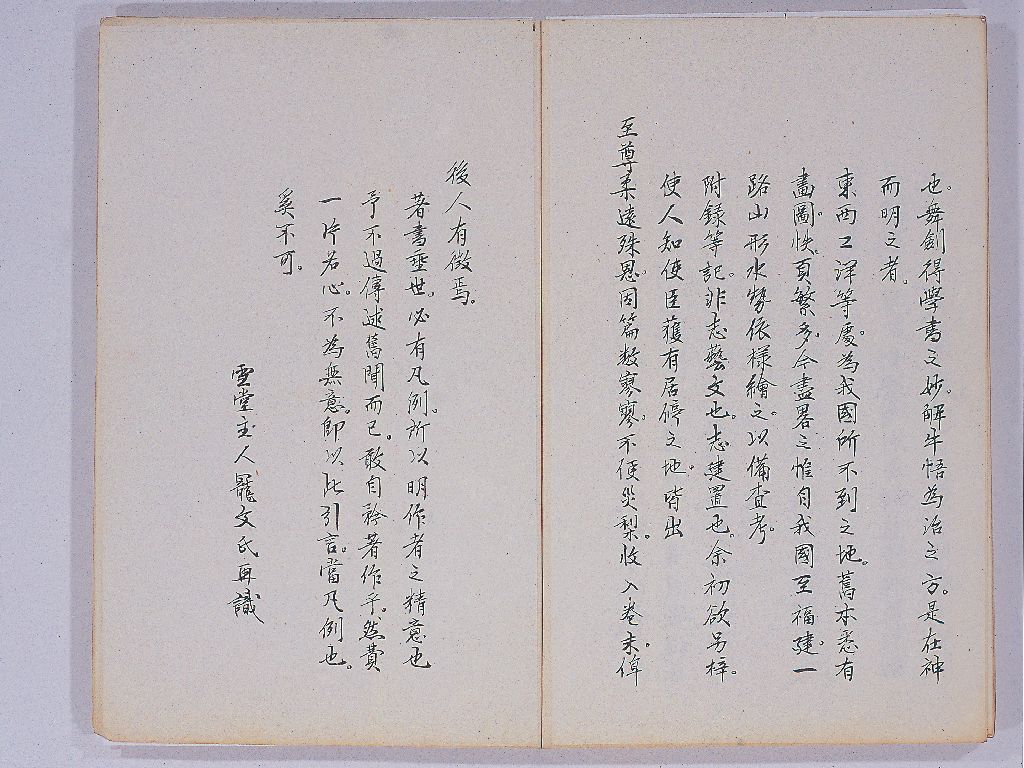 也。舞劍得學書之妙。解牛悟為治之方。是在神
而明之者。
東西二洋等處。為我國所不到之地。舊本悉有
畫圖。帙頁繁多。今盡畧之。惟自我國至福建。一
路山形水勢。依樣繪之。以備查考。
附錄等記。非志藝文也。志建置也。余初欲另梓。
使人知使臣獲有居停之地。皆出
至尊柔遠殊恩。因篇数寥寥。不便災梨。收入卷末。俾
後人有徴焉。
著書垂世。必有凡例。所以明作者之精意也
予不過傳述舊聞而已。敢自矜著作乎。然費
一片苦心。不為無意。即以此引言。當凡例也。
奚不可。
雪堂主人羆文氏再識